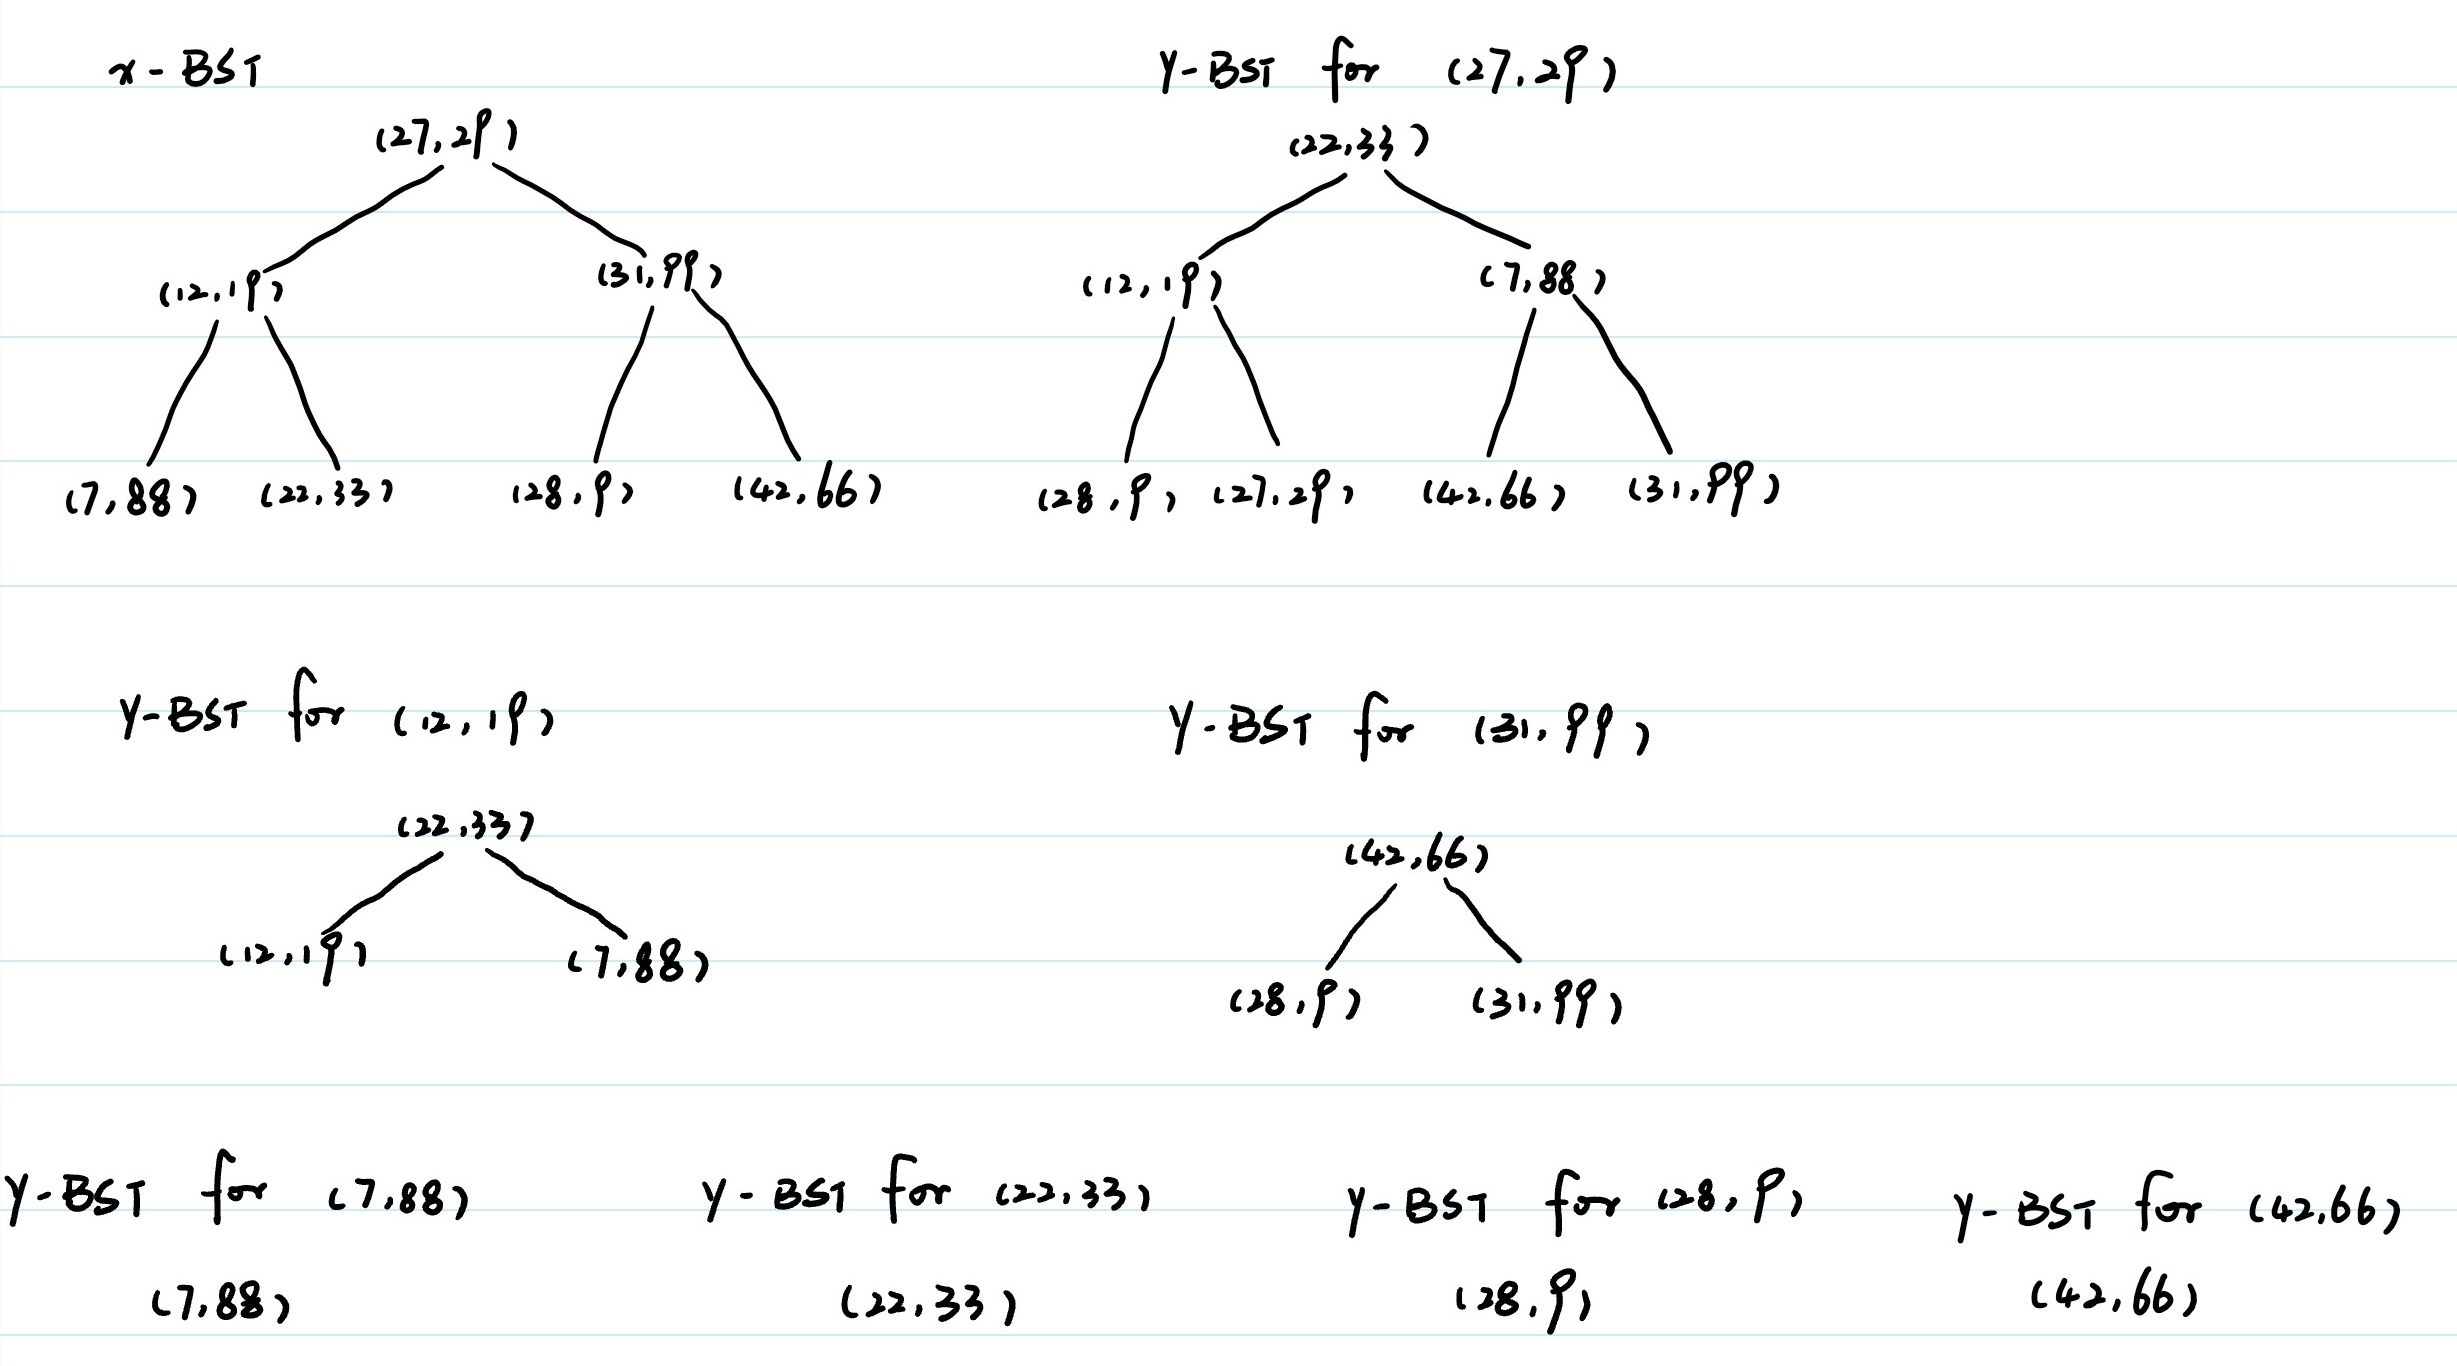 x-BST
(27,29)
(12,19) (31,99)
(7,88) (22,33) (28,9) (42,66)
Y-BST for (27,29)
(22,33)
(12,19) (7,88)
(28,9) (27,29) (42,66) (31,99)
Y-BST for (12,19)
(22,33)
(12,19) (7,88)
Y-BST for (31,99)
(42,66)
(28,9) (31,99)
Y-BST for (7,88)
(7,88)
Y-BST for (22,33)
(22,33)
Y-BST for (28,9)
(28,9)
Y-BST for (42,66)
(42,66)